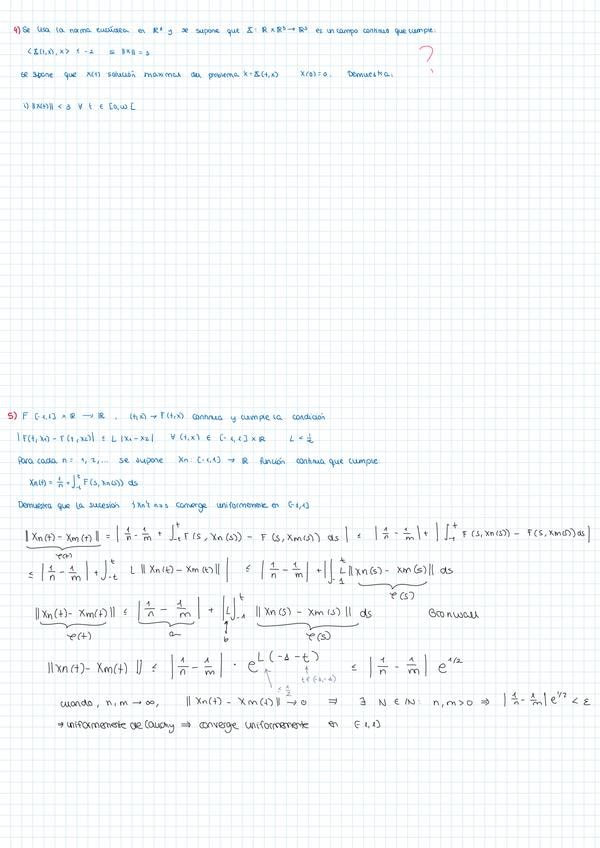 4) Se usa la norma euclídea en ℝ³ y se supone que X: ℝ × ℝ³ → ℝ³ es un campo continuo que cumple:
< X(t,x), x > ≤ -2 si ||x|| = 3
?
se spone que x(t) solución maximal del problema ẋ = X(t,x) x(0) = 0. Demuestra:
i) ||x(t)|| < 3 ∀ t ∈ [0,w[
5) F [-1,1] × ℝ → ℝ, (t,x) → F(t,x) continua y cumple la condición
|F(t,x₁) - F(t,x₂)| ≤ L |x₁ - x₂| ∀ (t,x) ∈ [-1,1] × ℝ L < 1/2
Para cada n = 1, 2, ... se supone Xn: [-1,1] → ℝ función continua que cumple:
Xn(t) = 1/n + ∫_{-1}^{t} F(s, xn(s)) ds
Demuestra que la sucesion {xn}n≥1 converge uniformemente en [-1,1]
||xn(t) - xm(t)|| = |1/n - 1/m + ∫_{-1}^{t} F(s, xn(s)) - F(s, xm(s)) ds| ≤ |1/n - 1/m| + |∫_{-1}^{t} F(s, xn(s)) - F(s, xm(s)) ds|
φ(t)
≤ |1/n - 1/m| + ∫_{-t}^{t} L ||xn(t) - xm(t)|| | ≤ |1/n - 1/m| + |∫_{-1}^{t} L ||xn(s) - xm(s)|| ds
φ(s)
||xn(t) - xm(t)|| ≤ |1/n - 1/m| + |L∫_{-1}^{t} ||xn(s) - xm(s)|| ds Gronwall
φ(t) a b φ(s)
||xn(t) - xm(t)|| ≤ |1/n - 1/m| · e^{L(-1-t)} ≤ |1/n - 1/m| e^{1/2}
≤ 1/2 t ∈ (-1,1)
cuando, n, m → ∞, ||xn(t) - xm(t)|| → 0 ⇒ ∃ N ∈ ℕ: n, m > 0 ⇒ |1/n - 1/m| e^{1/2} < ε
→ uniformemente de Cauchy ⇒ converge uniformemente en [-1,1]